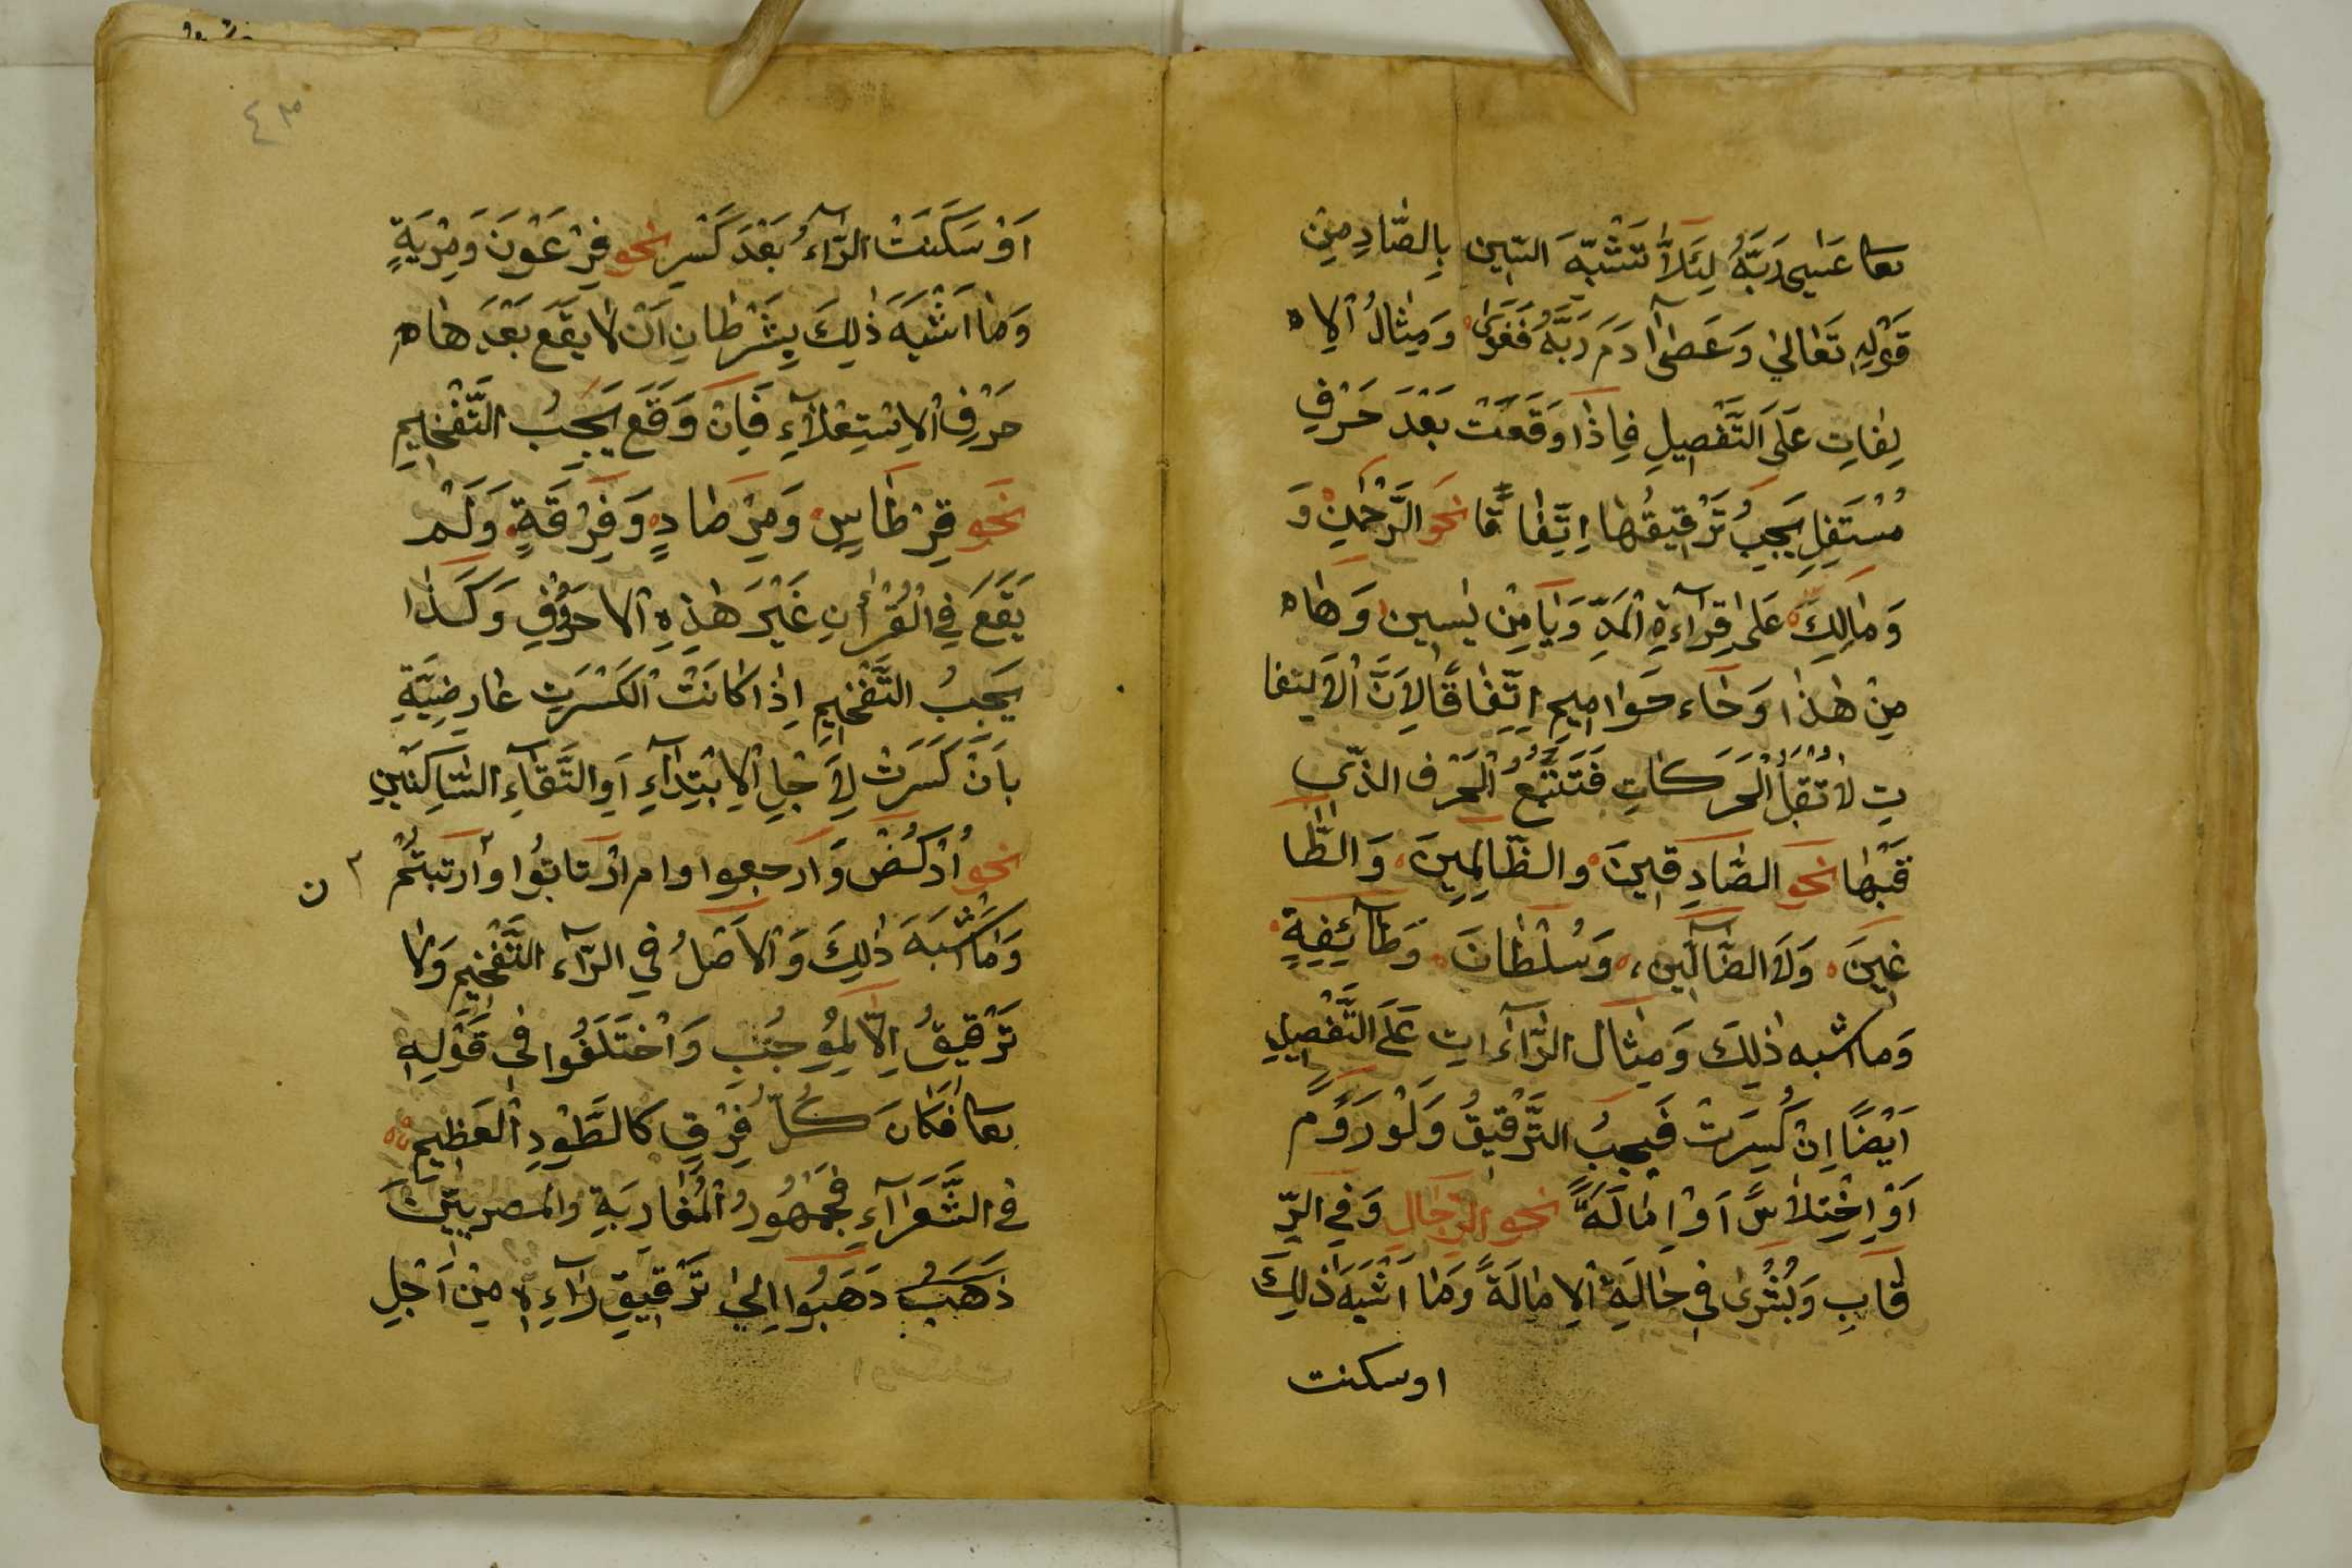 تعا عَسٰى رَبَّهُ لِئَلَّا تَشْبَهَ السّين بِالصَّادِ مِنْ
قَوْلِهِ تَعَالىٰ وَعَصٰى اٰدَمَ رَبَّهُ فَغَوٰى وَمِثَالُ الْاِ
لِفَاتِ عَلَى التَّفْصِيلِ فَاِذَا وَقَعَتْ بَعْدَ حَرْفِ
مُسْتَفِلٍ يَجِبُ تَرْقِيقُهَا اِتِّفَاقًا نَحْوَ الرَّحْمٰنِ وَ
وَمَالِكَ عَلىٰ قِرَآءَةِ الْمَدِّ وَيَا مِنْ يٰسين وَهَا
مِنْ هٰذَا وَحَاء حَوَامِيمِ اِتِّفَاقًا لِاَنَّ الْاَلِفَا
تِ لَا تُقْبَلُ الْحَرَكَاتِ فَتَتْبَعُ الْحَرْفَ الذّي
قَبْلَهَا نَحْوَ الصَّادِقِينَ والظَّالِمِينَ وَالطَّا
غِينَ وَلَا الضَّآلِّين، وَسُلْطَانَ وَطَآئِفَةٍ
وَمَا اشبه ذٰلِكَ وَمِثَالُ الرَّاٰءَاتِ عَلَى التَّفْصِيلِ
اَيْضًا اِنْ كُسِرَتْ فَيجِبُ التَّرْقِيقُ وَلَوْ رَوْمٌ
اَوْ اِخْتِلَاسٌ اَوْ اِمَالَةً نحو الرِّجَالِ وَفِي الرِّ
قَابِ وَبُشْرٰى فِي حَالَةِ الْاِمَالَةً وَمَا اَشْبَهَ ذٰلِكَ
او سكنت
٤٣
اَوْ سَكَنَتْ الرَّآءُ بَعْدَ كَسْرٍ نحو فِرْعَوْنَ وَمِرْيَةٍ
وَمَا اَشْبَهَ ذٰلِكَ بِشَرْطَانِ اَنْ لَا يَقَعَ بَعْدَ هَا
حَرْفِ الْاِسْتِعْلَآءِ فَاِنْ وَقَعَ يَجِبُ التَّفْخِيمِ
نَحْو قِرْطَاسٍ وَمِرْصَادٍ وَفِرْقَةٍ وَلَمْ
يَقَعَ فِي الْقُرْاٰنِ غَيْرَ هٰذِهِ الاحرُفِ وَكَذَا
يَجِبُ التَّفْخِيمِ اِذَا كَانَتْ الْكَسْرَتِ عَارِضِيَّةٍ
بِاَنْ كَسَرَتْ لِاَجْلِ الْاِبْتِدَآءِ اَوِ الْتَّقَآءِ السَّاكِنَيْنِ
نحو اُرْكُضْ وَارجعوا وام ارْتَابُوا وَارتَبتُمْ
ن
وَمَا اشْبَهَ ذٰلِكَ وَالْاَصْلُ فِي الرَّآءِ التَّفْخِيمِ وَلَا
تَرْقِيقُ اِلَّا لِمُوجِبٍ وَاخْتَلَفُوا فِي قَوْلِهِ
تعا فَكَانَ كُلُّ فِرْقٍ كَالطَّوْدِ الْعَظِيمِ
فِي الشُّعَرَآءِ فَجُمْهُورُ الْمَغَارِبَةِ والمصريّينَ
ذَهَبُ ذَهَبُوا اِلىٰ تَرْقِيقِ رَآءِهِ مِنْ اَجْلِ